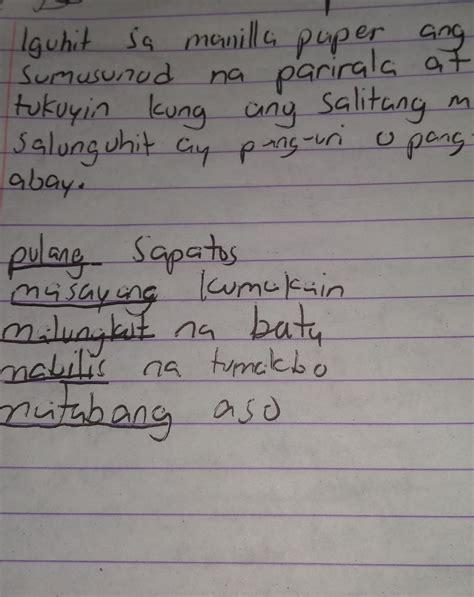 Iguhit sa manilla paper ang
sumusunod na parirala at
tukuyin kung ang salitang m
salunguhit ay pang-uri o pang
abay.
pulang sapatos
masayang kumakain
malungkot na bata
mabilis na tumakbo
matabang aso